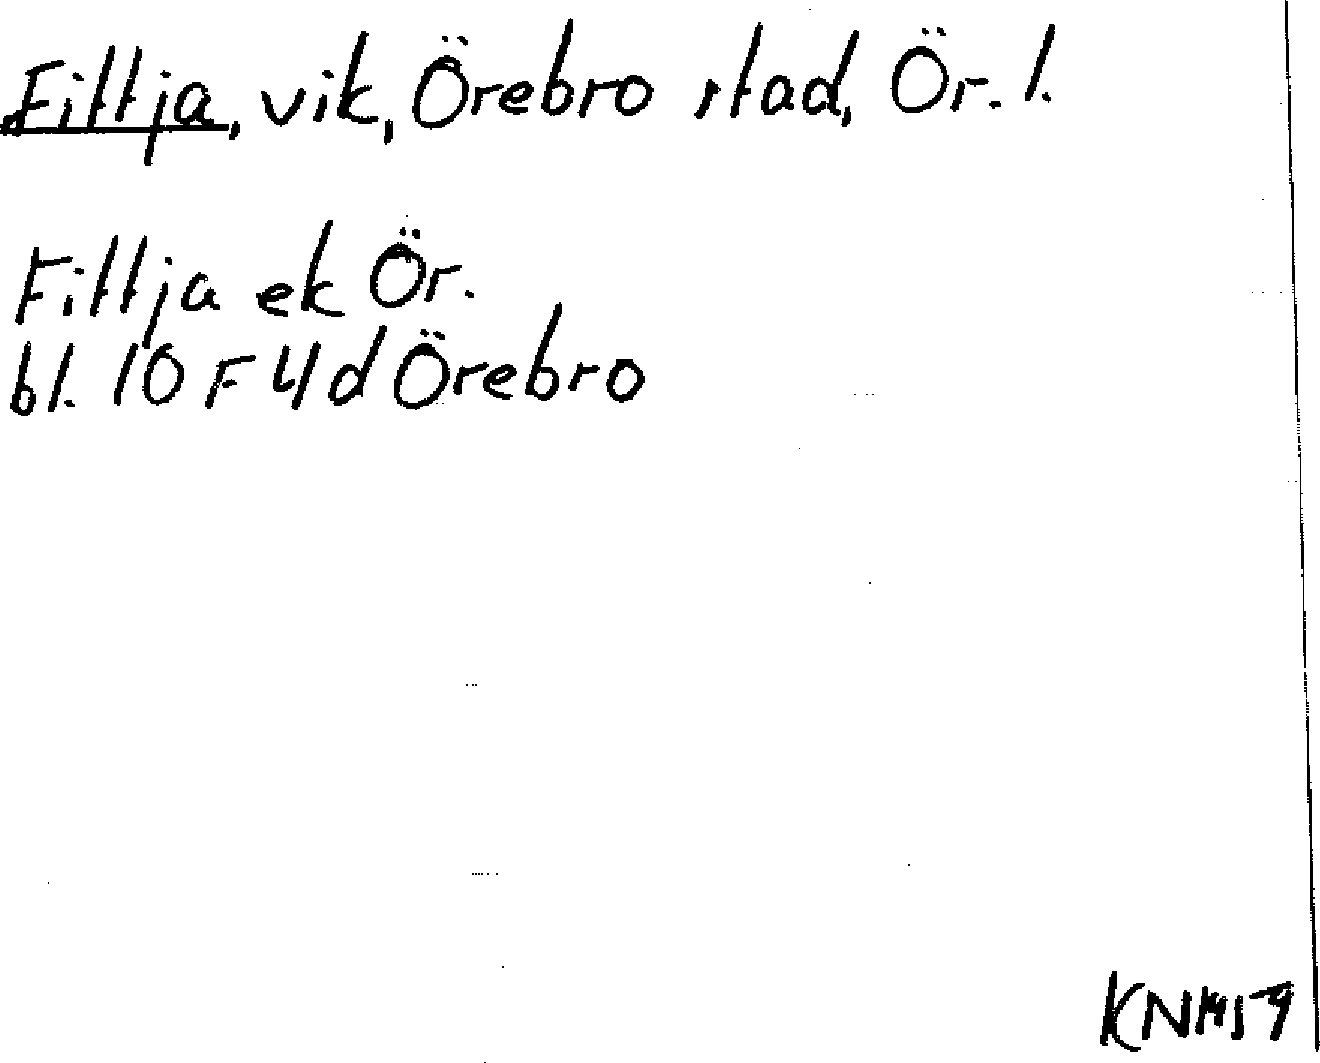 Fittja, vik, Örebro stad, Ör. l.
Fittja ek Ör.
bl. 10 F 4d Örebro